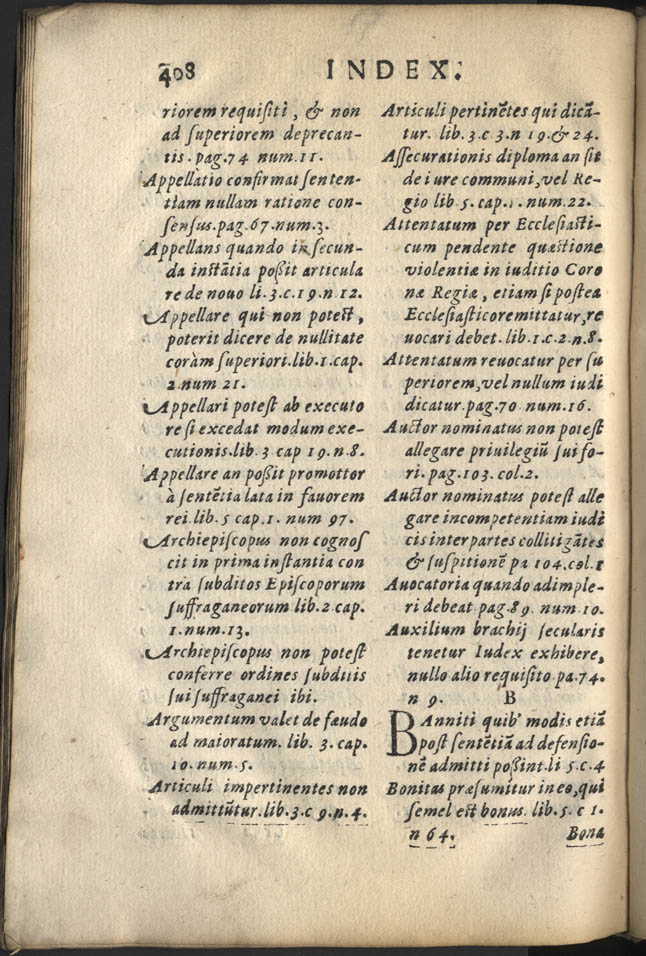 408
INDEX.
riorem requisiti, & non
ad superiorem deprecan-
tis. pag. 74 num. 11.
Appellatio confirmat senten-
tiam nullam ratione con-
sensus. pag. 67. num. 3.
Appellans quando in secun-
da instãtia poßit articula
re de nouo li. 3. c. 19. n. 12.
Appellare qui non potest,
poterit dicere de nullitate
coràm superiori. lib. 1. cap.
2. num 21.
Appellari potest ab executo
re si excedat modum exe-
cutionis. lib. 3 cap 19. n. 8.
Appellare an poßit promottor
à sentẽtia lata in fauorem
rei. lib. 5 cap. 1. num 97.
Archiepiscopus non cognos
cit in prima instantia con
tra subditos Episcoporum
suffraganeorum lib. 2 cap.
1. num. 13.
Archiepiscopus non potest
conferre ordines subditis
sui suffraganei ibi.
Argumentum valet de fæudo
ad maioratum. lib. 3. cap.
10. num. 5.
Articuli impertinentes non
admittũtur. lib. 3. c 9. n. 4.
Articuli pertinẽtes qui dicã-
tur. lib. 3. c 3. n 19. & 24.
Assecurationis diploma an sit
de iure communi, vel Re-
gio lib 5. cap. 1. num. 22.
Attentatum per Ecclesiasti-
cum pendente quæstione
violentiæ in iuditio Coro
næ Regiæ, etiam si postea
Ecclesiastico remittatur, re
uocari debet. lib. 1. c. 2. n. 8.
Attentatum reuocatur per su
periorem, vel nullum iudi
dicatur. pag. 70 num. 16.
Auctor nominatus non potest
allegare priuilegiũ sui fo-
ri. pag. 103. col. 2.
Auctor nominatus potest alle
gare incompetentiam iudi
cis inter partes collitigãtes
& suspitionẽ pa 104. col. 1
Auocatoria quando adimple-
ri debeat pag. 89. num. 10.
Auxilium brachij secularis
tenetur Iudex exhibere,
nullo alio requisito pa. 74.
n 9.
B
BAnniti quib' modis etiã
post sentẽtiã ad defensio-
nẽ admitti poßint. li 5. c. 4
Bonitas præsumitur in eo, qui
semel est bonus. lib. 5. c 1.
n 64.
Bona